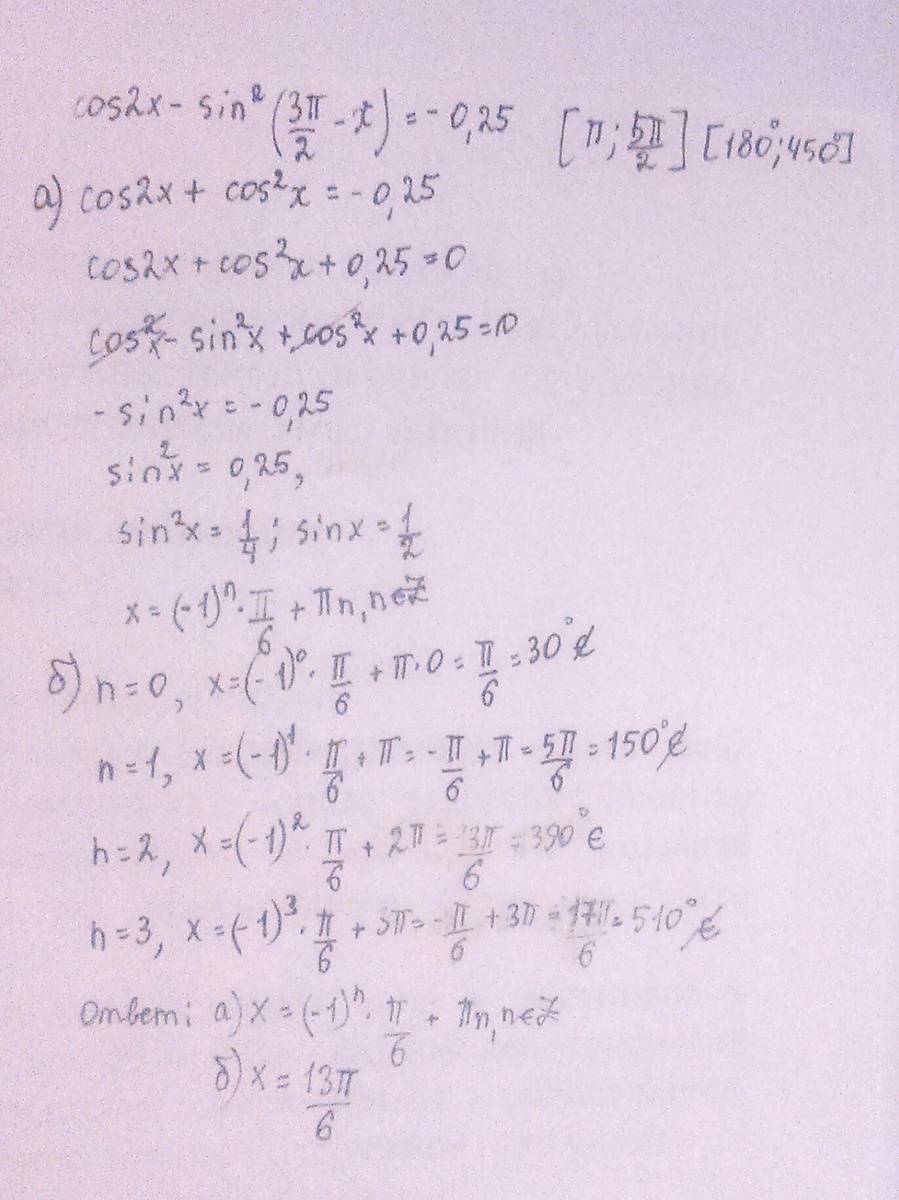 cos2x - sin²(3π/2 - x) = -0,25 [π; 5π/2] [180°; 450°]
а) cos2x + cos²x = -0,25
cos2x + cos²x + 0,25 = 0
cos²x - sin²x + cos²x + 0,25 = 0
- sin²x = -0,25
sin²x = 0,25,
sin²x = 1/4; sinx = 1/2
x = (-1)ⁿ · π/6 + πn, n∈Z
б) n=0, x=(-1)⁰ · π/6 + π·0 = π/6 = 30° ∉
n=1, x=(-1)¹ · π/6 + π = -π/6 + π = 5π/6 = 150° ∉
n=2, x=(-1)² · π/6 + 2π = 13π/6 = 390° ∈
n=3, x=(-1)³ · π/6 + 3π = -π/6 + 3π = 17π/6 = 510° ∉
Ответ: а) x = (-1)ⁿ · π/6 + πn, n∈Z
б) x = 13π/6